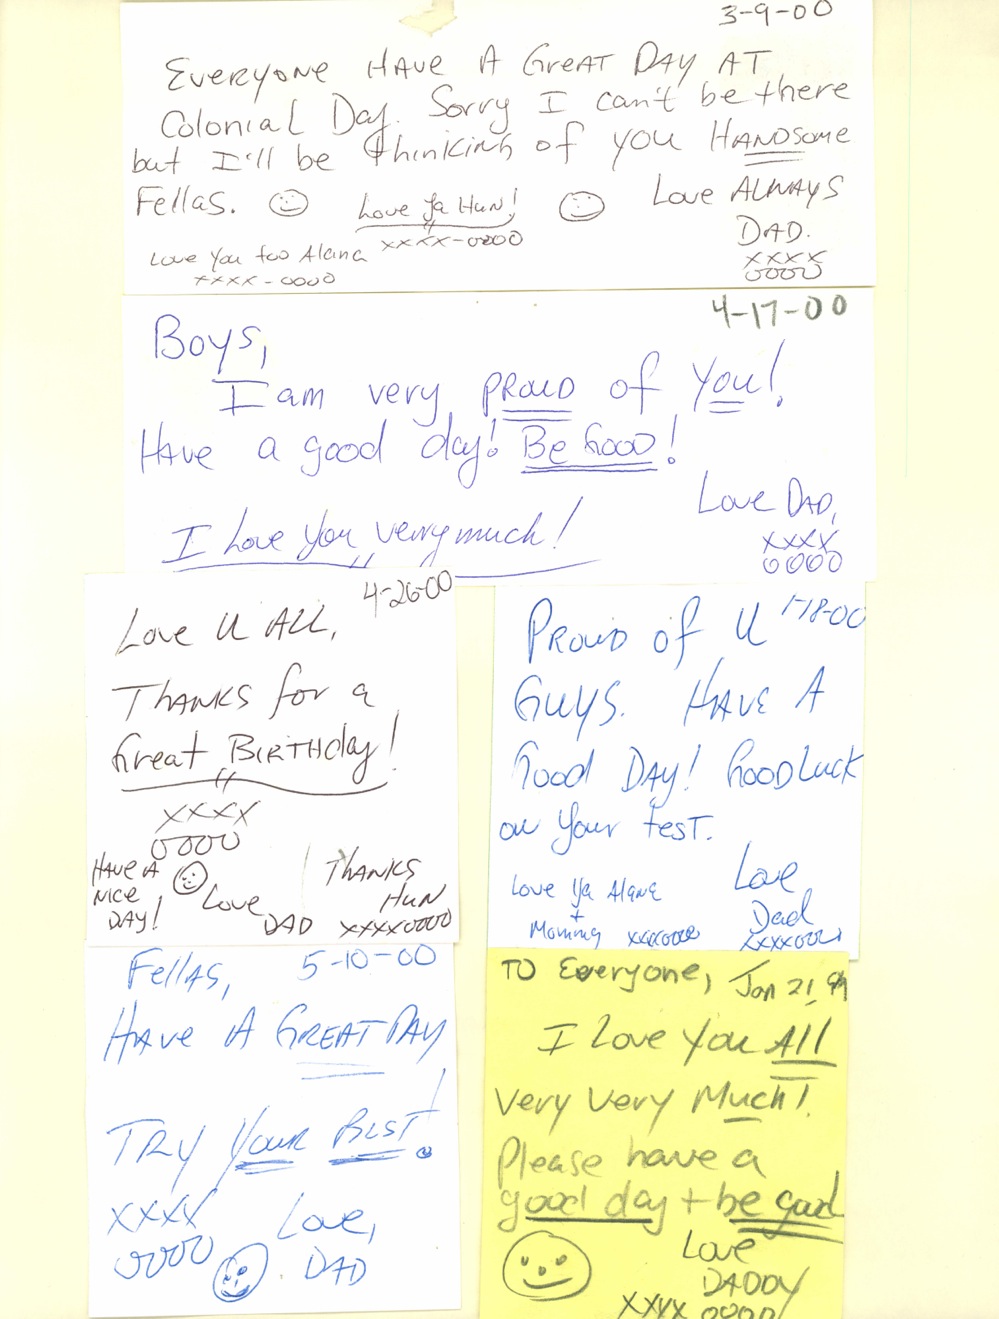 3-9-00
EVERYONE HAVE A GREAT DAY AT
COLONIAL DAY. SORRY I can't be there
but I'll be thinking of you HANDSOME
Fellas. Love Ya HUN! Love ALWAYS
xxxx-0000 DAD.
Love You too Alana xxxx
xxxx-0000 0000
4-17-00
Boys,
I am very PROUD of You!
HAVE a good day! Be GOOD!
Love DAD,
I Love You very much! xxxx
0000
4-26-00
Love U ALL,
THANKS for a
Great BIRTHday!
xxxx
0000
HAVE A
NICE
DAY!
Love
DAD
THANKS
HUN
xxxx0000
1-18-00
PROUD of U
GUYS. HAVE A
Good DAY! GOOD LUCK
on Your tesT.
Love Ya Alana
+
Mommy xxxx0000
Love
Dad
xxxx0000
Fellas, 5-10-00
HAVE A GREAT DAY
TRY YOUR BEST!
xxxx
0000
Love,
DAD
TO Everyone, Jan 21,
I Love You All
very very Much!
Please have a
good day + be good
Love
DADDY
xxxx 0000